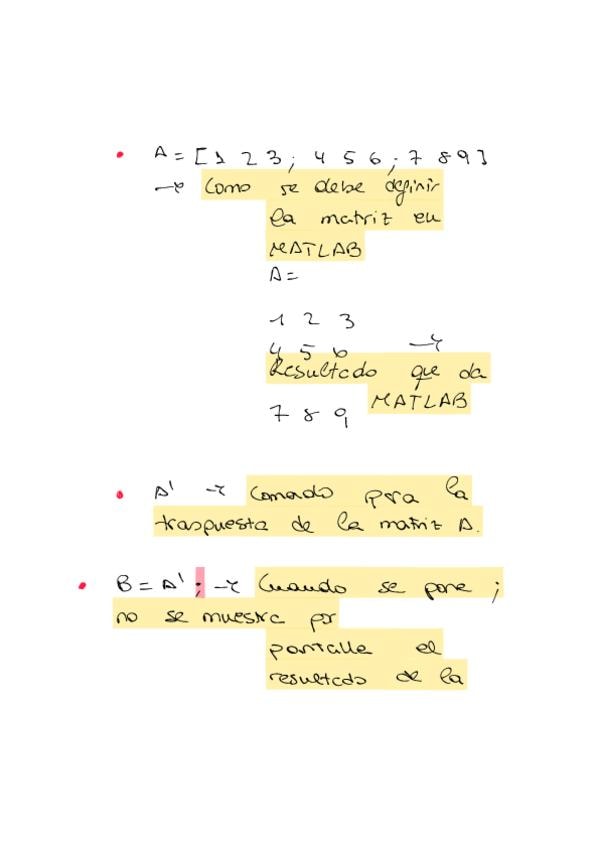 • A = [1 2 3; 4 5 6; 7 8 9]
→ Como se debe definir
la matriz en
MATLAB
A =
1 2 3
4 5 6 →
Resultado que da
7 8 9 MATLAB
• A' → Comando para la
traspuesta de la matriz A.
• B = A'; → Cuando se pone ;
no se muestra por
pantalla el
resultado de la